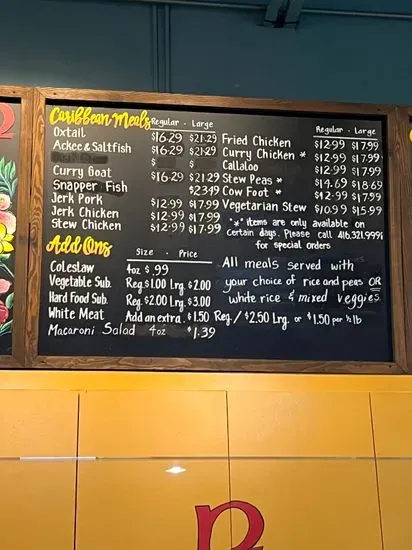 Caribbean Meals Regular - Large
Oxtail $16.29 $21.29
Ackee & Saltfish $16.29 $21.29
$ $
Curry Goat $16.29 $21.29
Snapper Fish $23.49
Jerk Pork $12.99 $17.99
Jerk Chicken $12.99 $17.99
Stew Chicken $12.99 $17.99
Regular - Large
Fried Chicken $12.99 $17.99
Curry Chicken * $12.99 $17.99
Callaloo $12.99 $17.99
Stew Peas * $14.69 $18.69
Cow Foot * $12.99 $17.99
Vegetarian Stew $10.99 $15.99
"*" items are only available on
Certain days. Please call 416.321.9991
for special orders
Add Ons Size - Price
Coleslaw 4oz $.99
Vegetable Sub. Reg.$1.00 Lrg.$2.00
Hard Food Sub. Reg.$2.00 Lrg.$3.00
White Meat Add an extra.$1.50 Reg./$2.50 Lrg. or $1.50 per ½ lb
Macaroni Salad 4oz $1.39
All meals served with
your choice of rice and peas OR
white rice & mixed veggies.